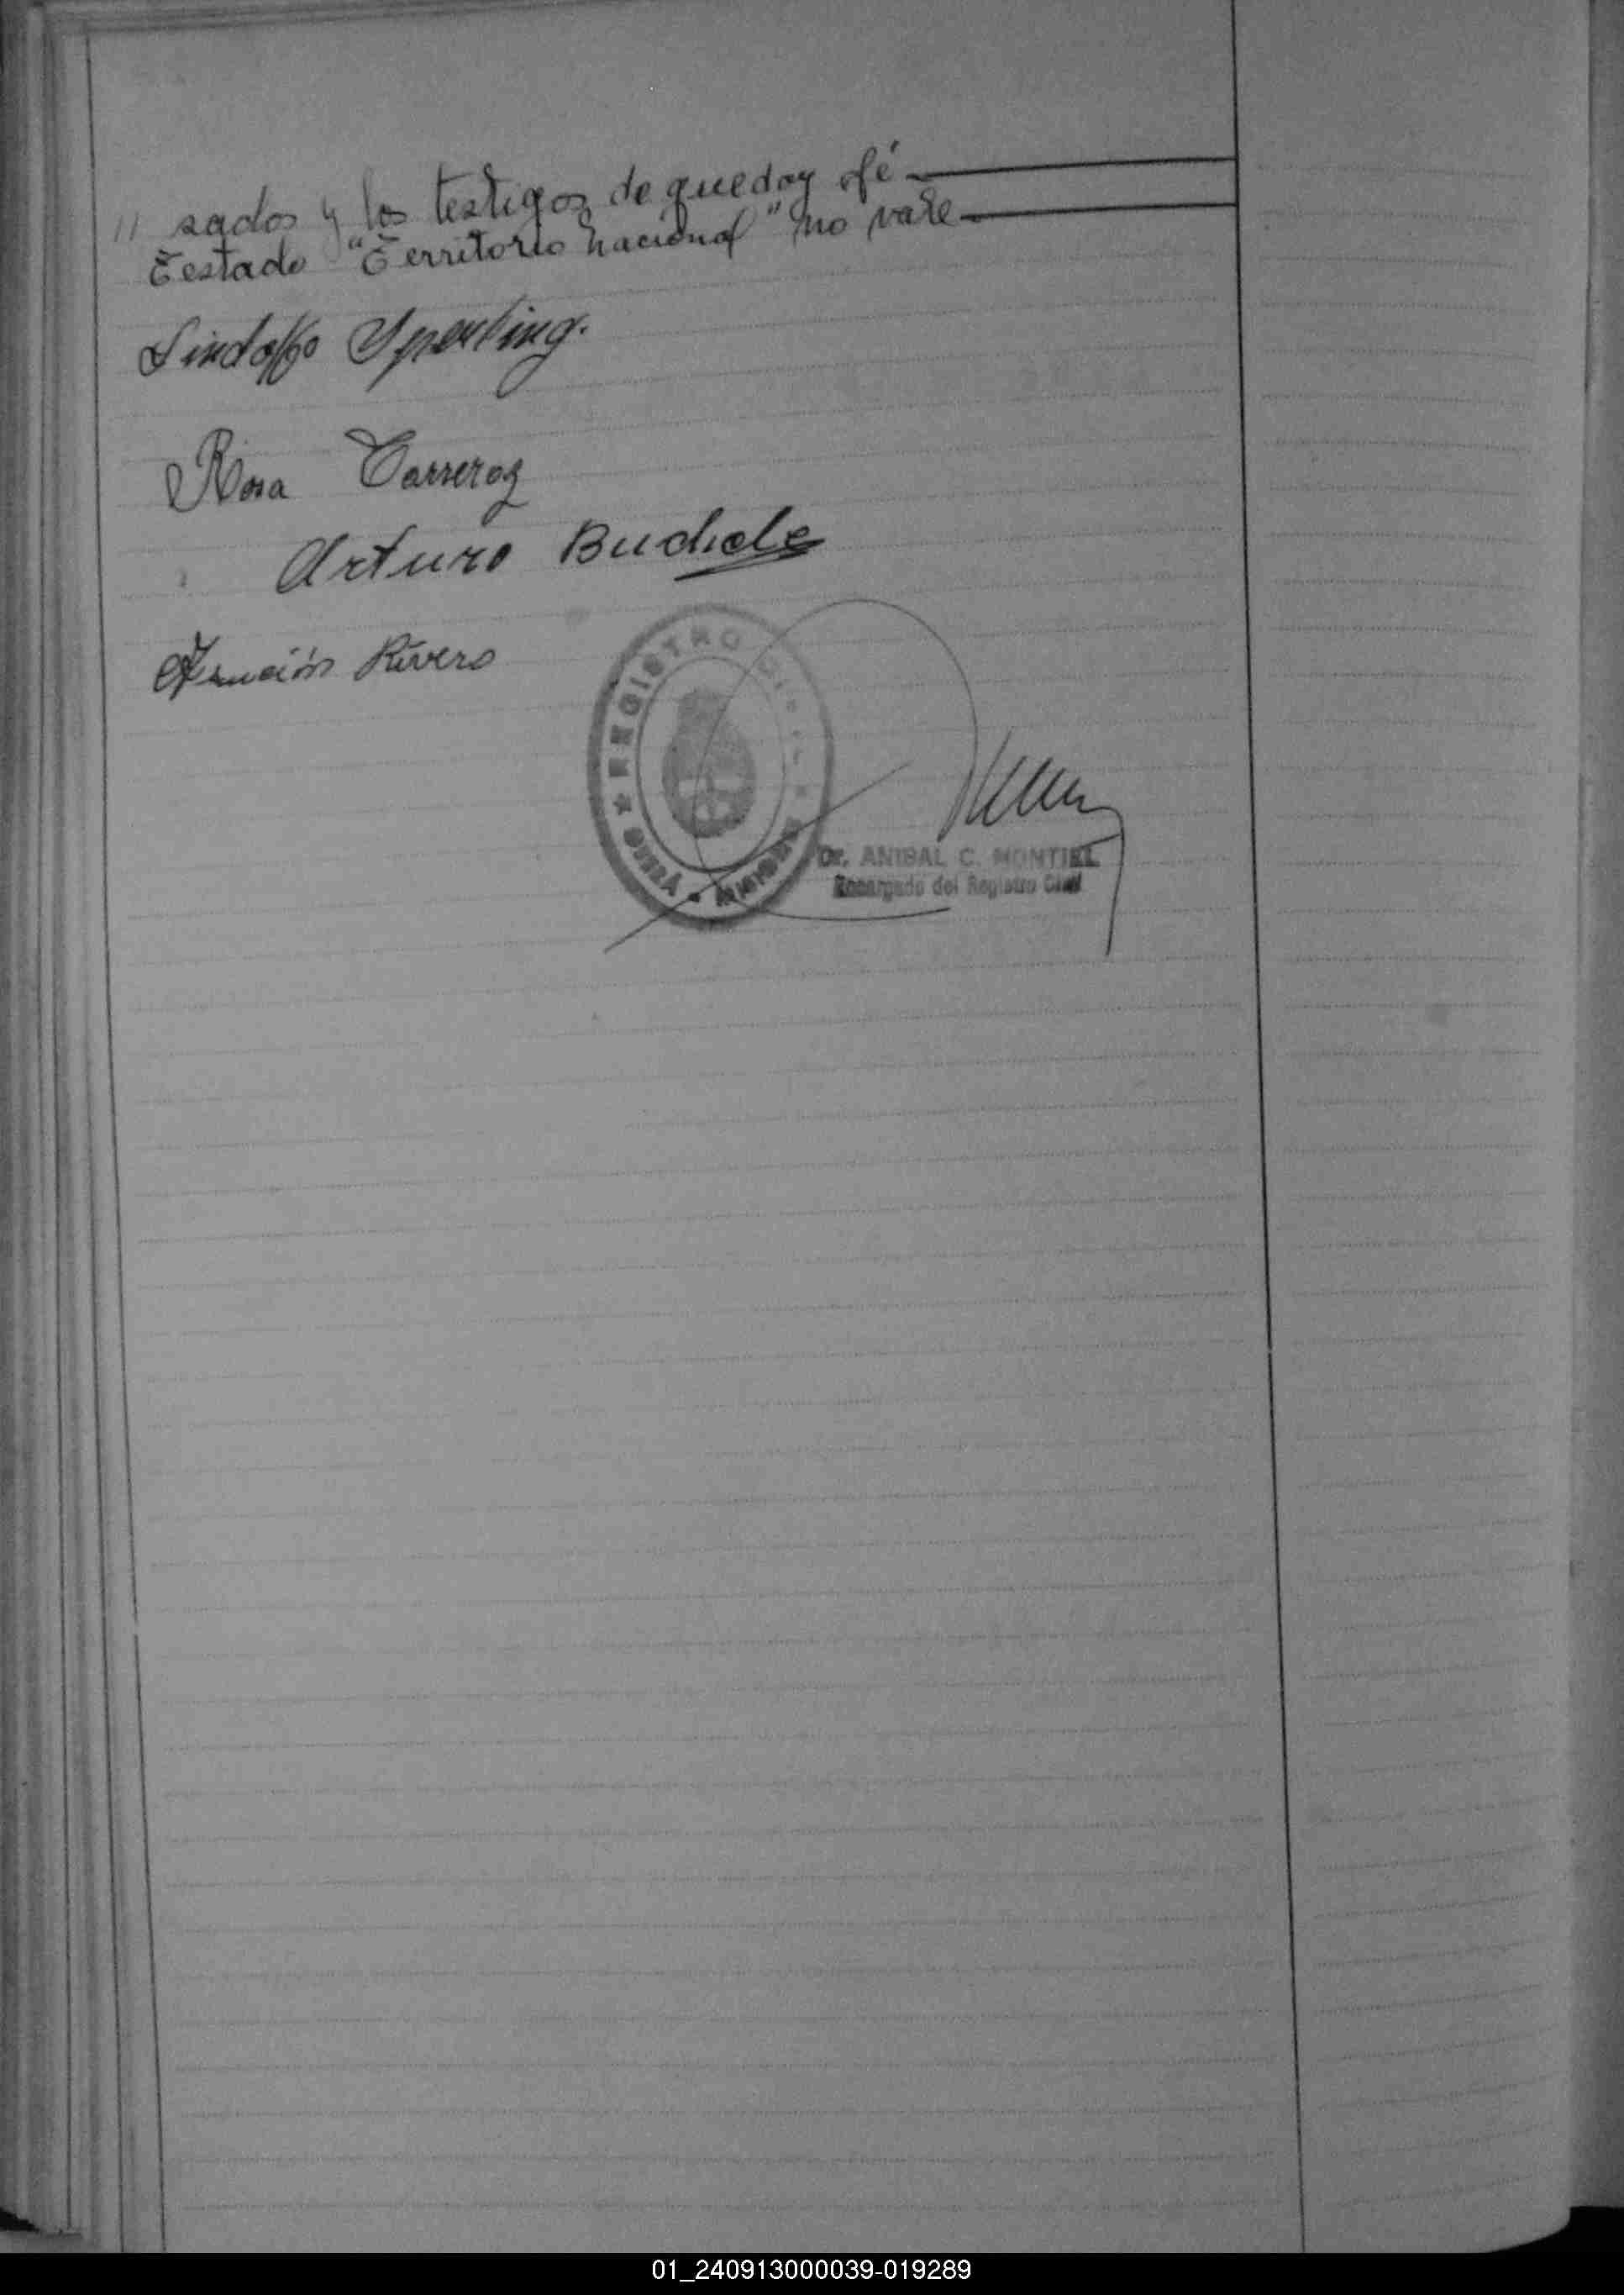 // sados y los testigos de que doy fé
Testado "Territorio nacional" no vale
Lindolfo Sperling.
Rosa Carreroz
Arturo Buchele
Asunción Rivero
REGISTRO CIVIL
OBERÁ • MISIONES
Dr. ANIBAL C. MONTIEL
Encargado del Registro Civil
01_240913000039-019289